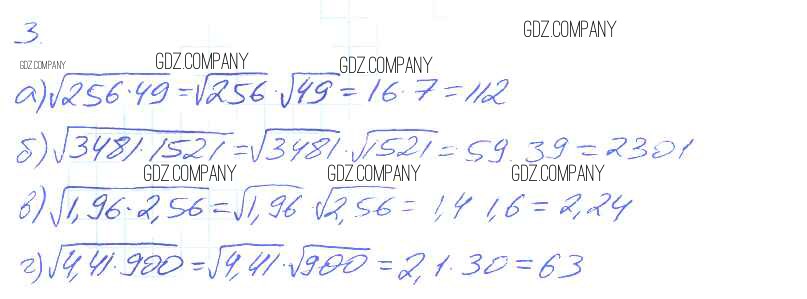 GDZ.COMPANY
3.
GDZ.COMPANY GDZ.COMPANY GDZ.COMPANY
а) √256·49 = √256 · √49 = 16·7 = 112
б) √3481·1521 = √3481 · √1521 = 59·39 = 2301
GDZ.COMPANY GDZ.COMPANY GDZ.COMPANY
в) √1,96·2,56 = √1,96 √2,56 = 1,4 1,6 = 2,24
г) √4,41·900 = √4,41·√900 = 2,1·30 = 63